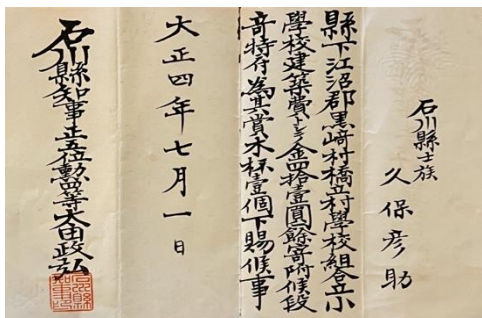 石川縣士族
久保彦助
縣下江沼郡黒﨑村橋立村學校組合立小
學校建築費トシテ金四拾壹圓餘寄附候段
奇特付為其賞木杯壹個下賜候事
大正四年七月一日
石川縣知事正五位勲四等太田政弘